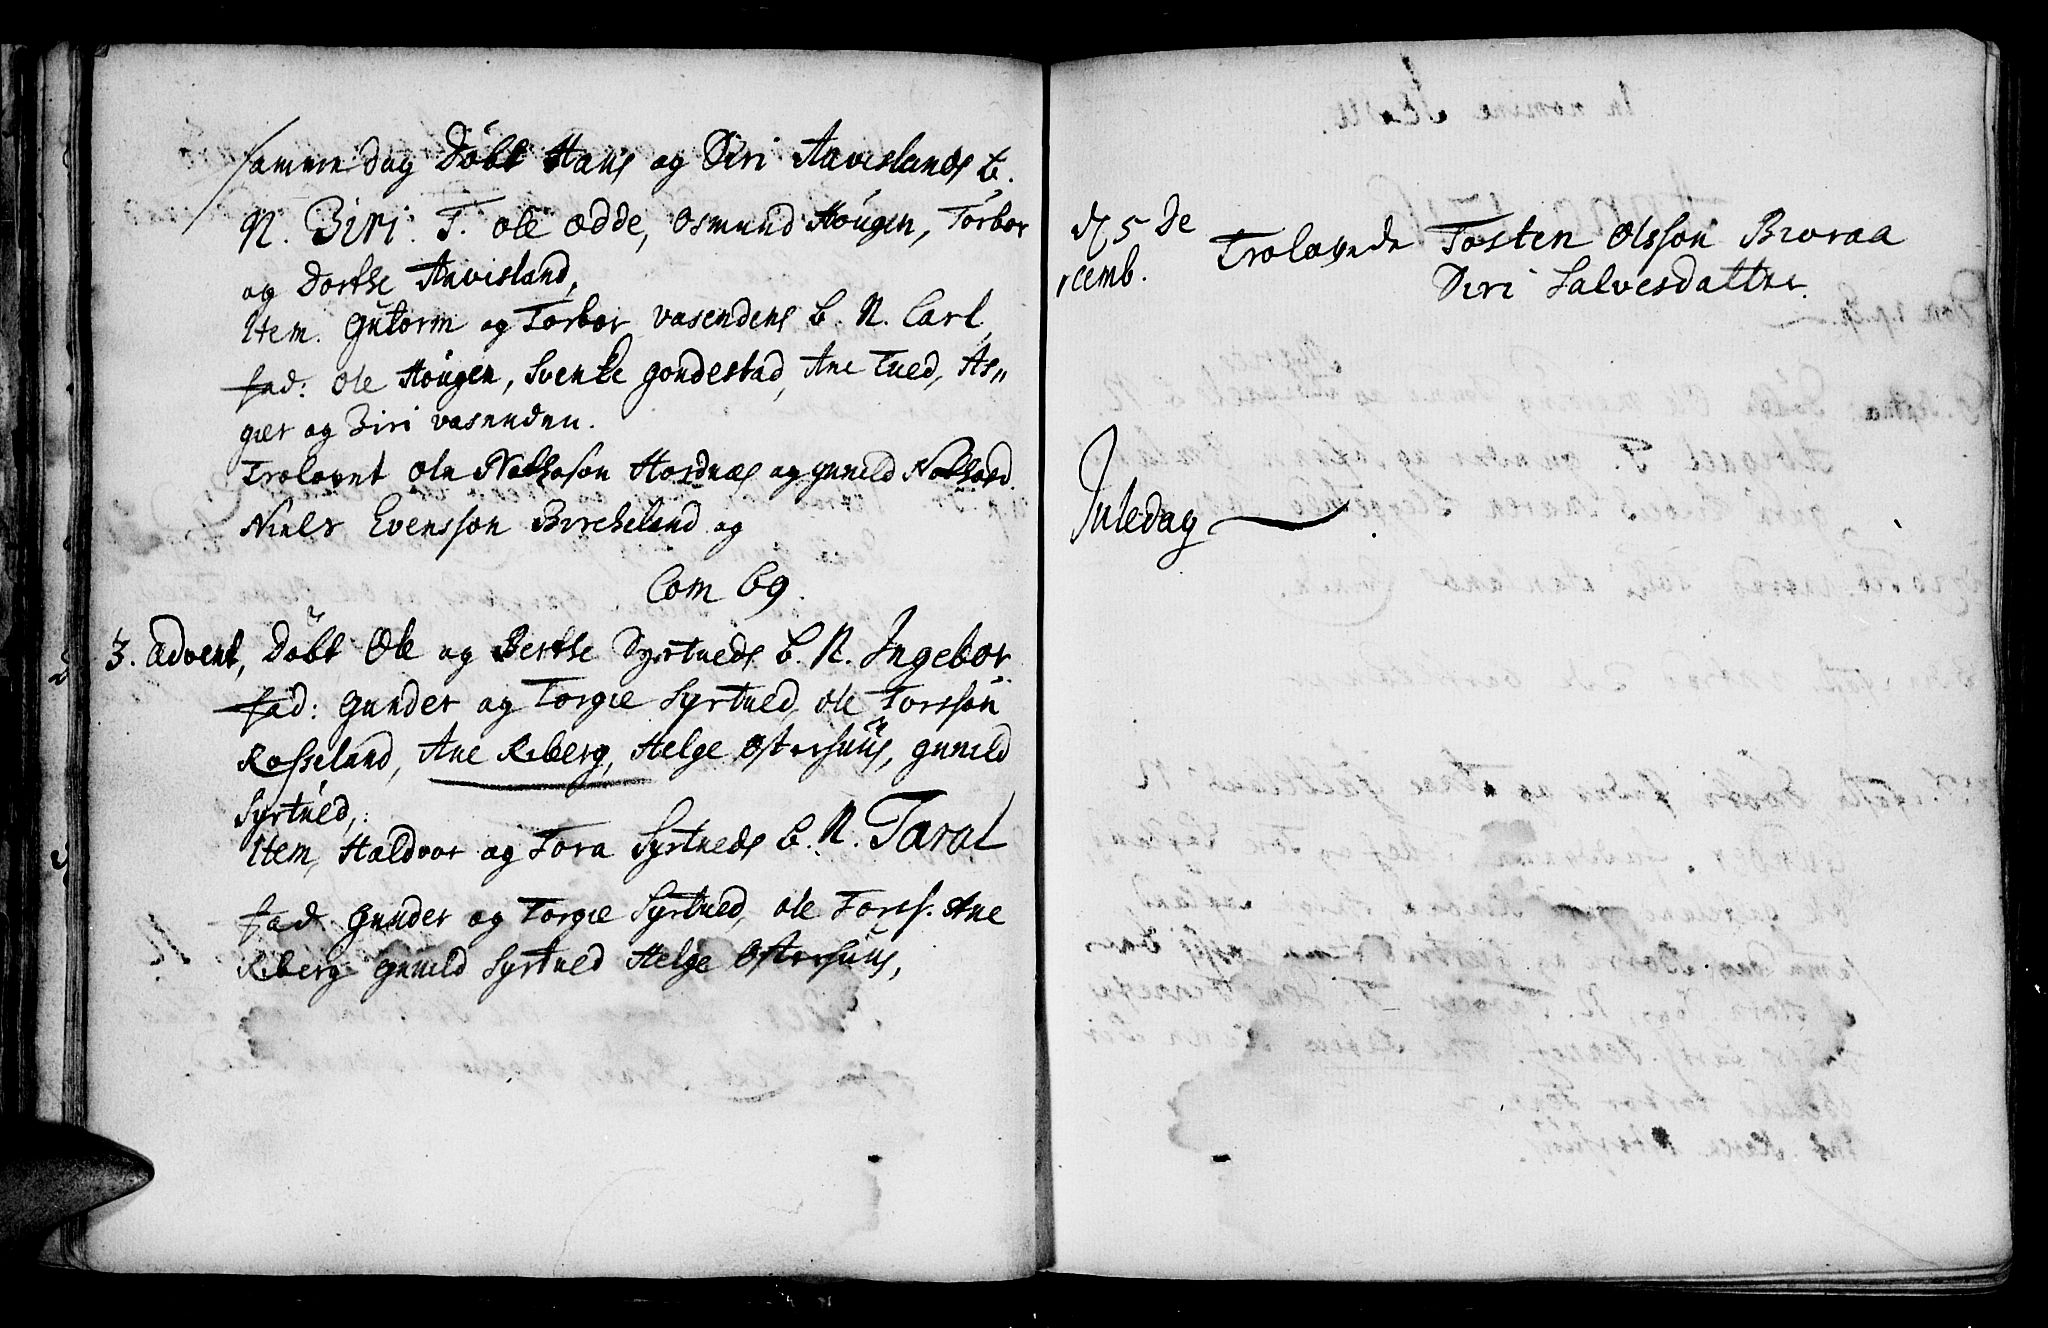 samme Dag Döbt Hans og Siri Aavislands b.
N. Siri. T. Ole Odde, Osmund Hougen, Torbor
og Dorthe Aavisland,
Item. Gutorm og Torbor vasendens b. N. Carl,
fad: Ole Hougen, Svenke gondestad, Ane Tued, As„
gier og Siri vasenden.
Trolovet Ole Hordnæs og Gunild
Niels Evensson Birckeland og
Com 69.
3. Advent, Döbt Ole og Berthe Syrtueds b. N. Ingebor
fad: Gunder og Torgie Syrtued, Ole Torsson
Rosseland, Ane Reberg, Helge Ostershuus, gunild
Syrtued,
Item, Haldvor og Tora Syrtueds b. N. Taral
fad Gunder og Torgie Syrtued, Ole Torss. Ane
Reberg Gunild Syrtued Helge Ostershuus,
d 5 De
cemb.
Trolovede Tosten Olsson
Siri Salvesdatter.
Juledag